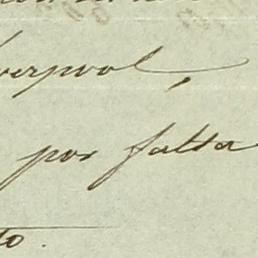 verpool,
por falta
to.